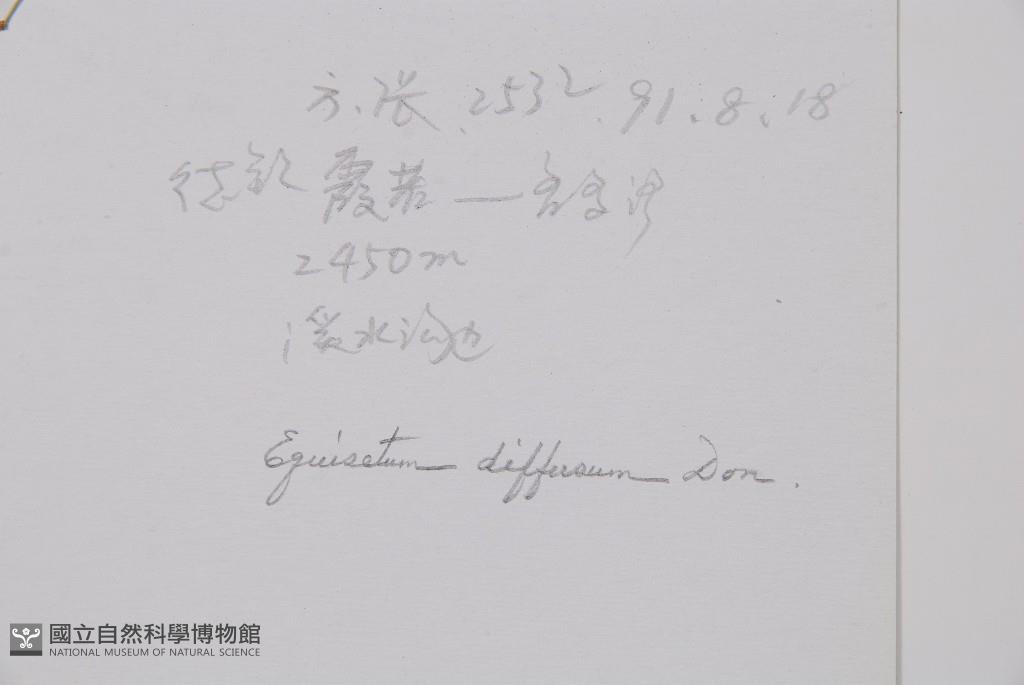 方、张、2532、91.8.18
德钦霞若—各么沙
2450m
溪水沟边
Equisetum diffusum Don.
國立自然科學博物館
NATIONAL MUSEUM OF NATURAL SCIENCE